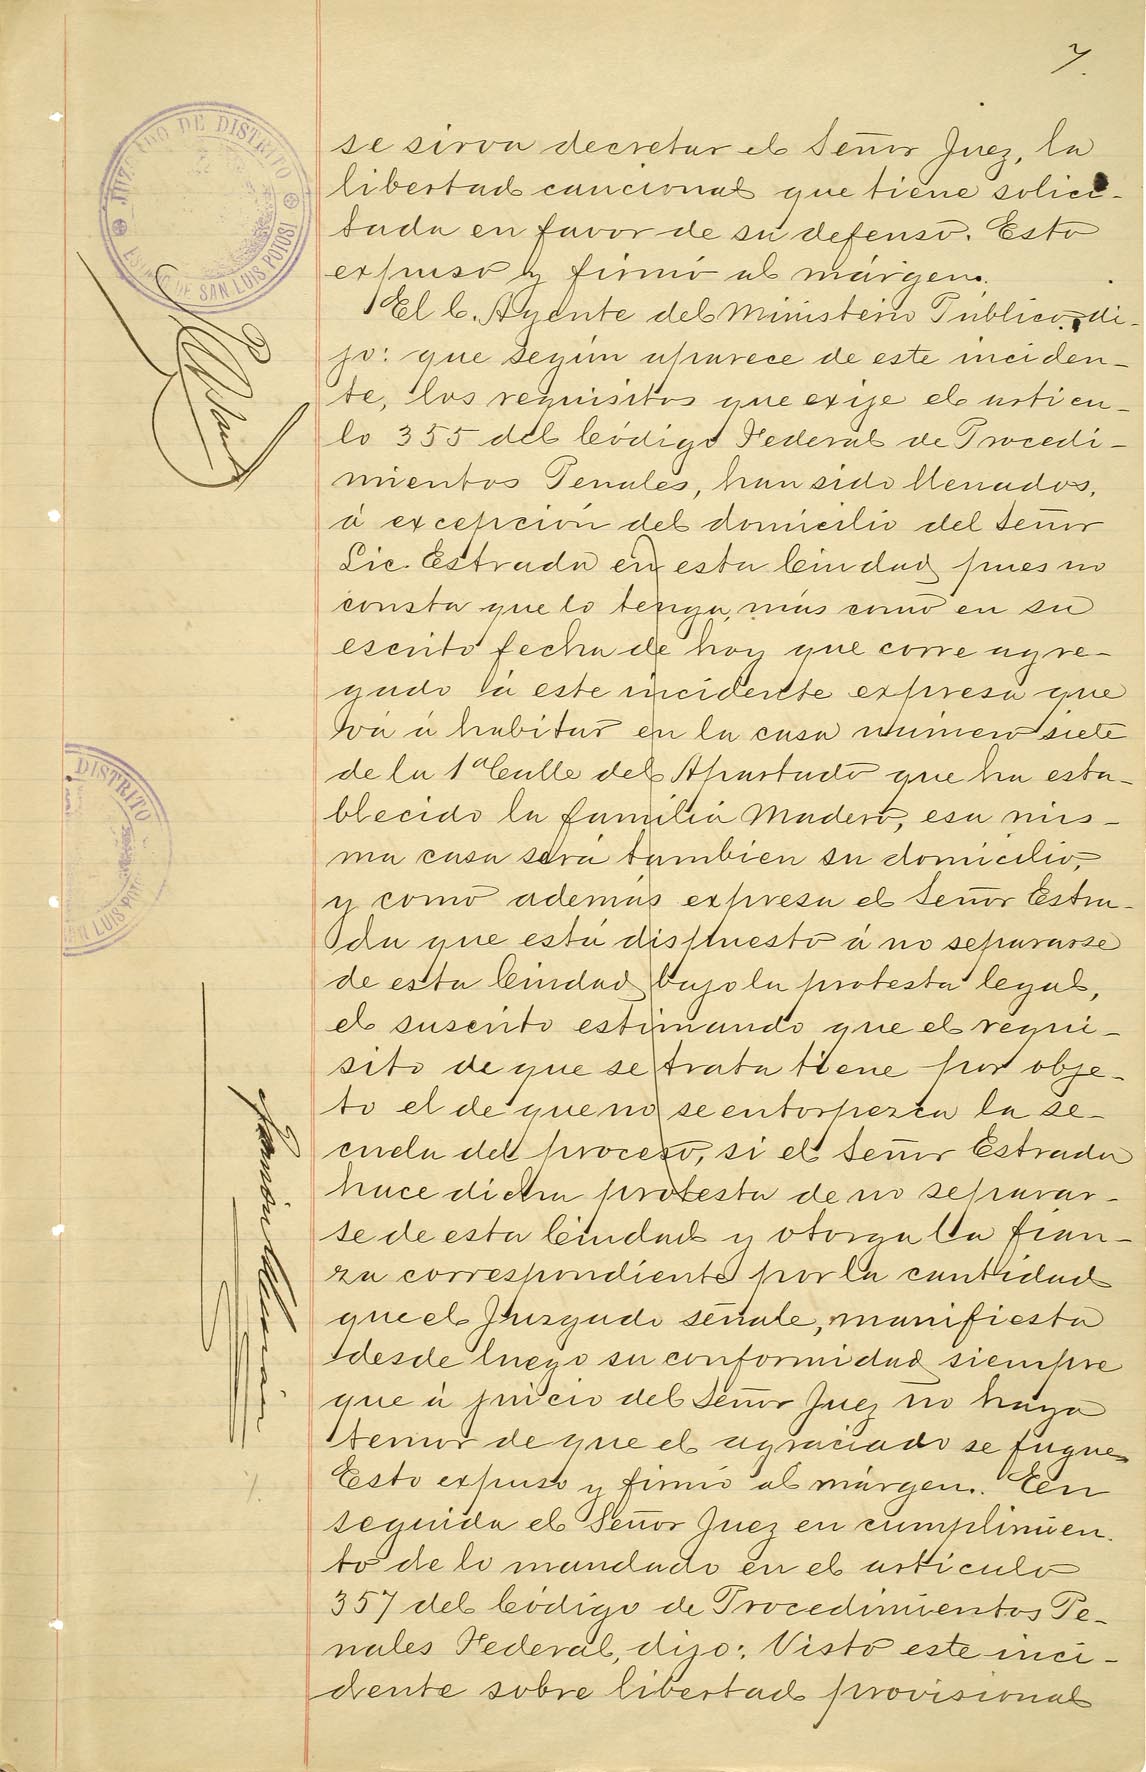 7.
JUZGADO DE DISTRITO
ESTADO DE SAN LUIS POTOSI
se sirva decretar el Señor Juez, la
libertad caucional que tiene solici-
tada en favor de su defenso. Esto
expuso y firmó al márgen.
El C. Agente del Ministerio Público, di-
jo: que según aparece de este inciden-
te, los requisitos que exije el artícu-
lo 355 del Código Federal de Procedi-
mientos Penales, han sido llenados,
á excepción del domicilio del Señor
Lic. Estrada en esta Ciudad, pues no
consta que lo tenga, más como en su
escrito fecha de hoy que corre agre-
gado á este incidente expresa que
vá á habitar en la casa número siete
de la 1a Calle del Apartado que ha esta-
blecido la familia Madero, esa mis-
ma casa será también su domicilio,
y como además expresa el Señor Estra-
da que está dispuesto á no separarse
de esta Ciudad, bajo la protesta legal,
el suscrito estimando que el requi-
sito de que se trata tiene por obje-
to el de que no se entorpezca la se-
cuela del proceso, si el Señor Estrada
hace dicha protesta de no separar-
se de esta Ciudad y otorga la fian-
za correspondiente por la cantidad
que el Juzgado señale, manifiesta
desde luego su conformidad, siempre
que á juicio del Señor Juez no haya
temor de que el agraciado se fugue.
Esto expuso y firmó al márgen. En
seguida el Señor Juez en cumplimien-
to de lo mandado en el artículo
357 del Código de Procedimientos Pe-
nales Federal, dijo: Visto este inci-
dente sobre libertad provisional
DISTRITO
SAN LUIS POTO
Ramón